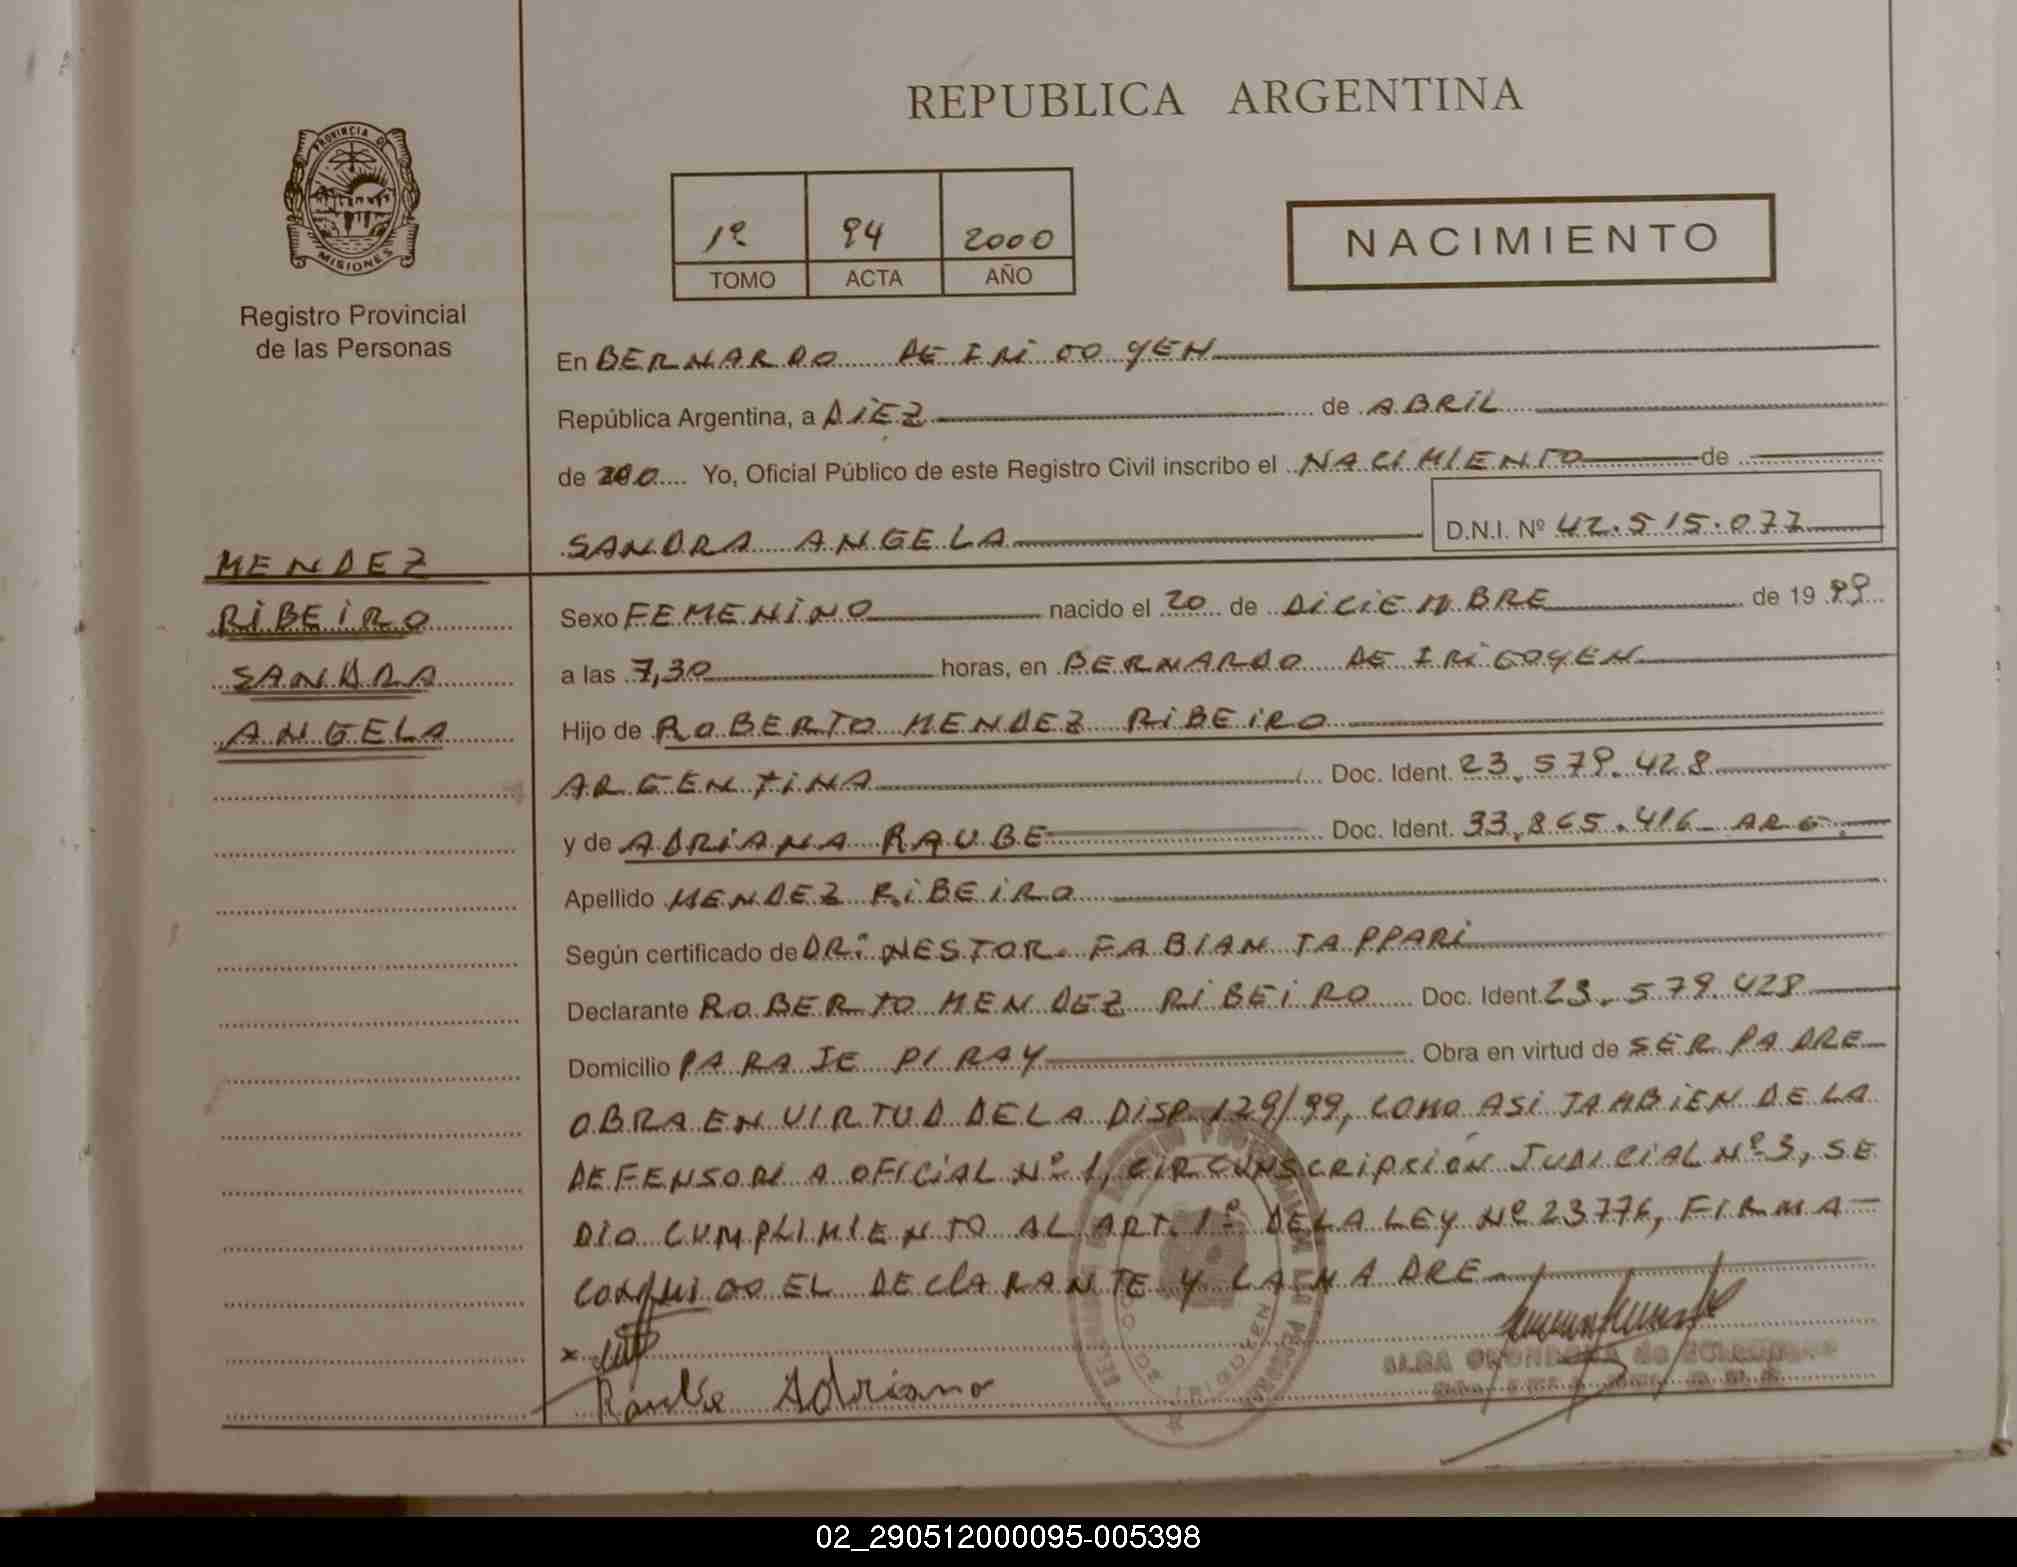 REPUBLICA ARGENTINA
PROVINCIA DE
MISIONES
Registro Provincial
de las Personas
1º 94 2000
TOMO ACTA AÑO
NACIMIENTO
En BERNARDO DE IRIGOYEN
República Argentina, a DIEZ de ABRIL
de Yo, Oficial Público de este Registro Civil inscribo el NACIMIENTO de
SANDRA ANGELA D.N.I. Nº 42.515.077
MENDEZ
RIBEIRO
SANDRA
ANGELA
Sexo FEMENINO nacido el 20 de DICIEMBRE de 1999
a las 7,30 horas, en BERNARDO DE IRIGOYEN
Hijo de ROBERTO MENDEZ RIBEIRO
ARGENTINA Doc. Ident. 23.579.428
y de ADRIANA RAUBE Doc. Ident. 33.865.416 ARG.
Apellido MENDEZ RIBEIRO
Según certificado de DR: NESTOR FABIAN TAPPARI
Declarante ROBERTO MENDEZ RIBEIRO Doc. Ident. 23.579.428
Domicilio PARAJE PIRAY Obra en virtud de SER PADRE
OBRA EN VIRTUD DE LA DISP. 129/99, COMO ASI TAMBIEN DE LA
DEFENSORIA OFICIAL Nº 1, CIRCUNSCRIPCION JUDICIAL Nº 3, SE
DIO CUMPLIMIENTO AL ART. 1º DE LA LEY Nº 23776, FIRMA
CONMIGO EL DECLARANTE Y LA MADRE
Adriana
02_290512000095-005398